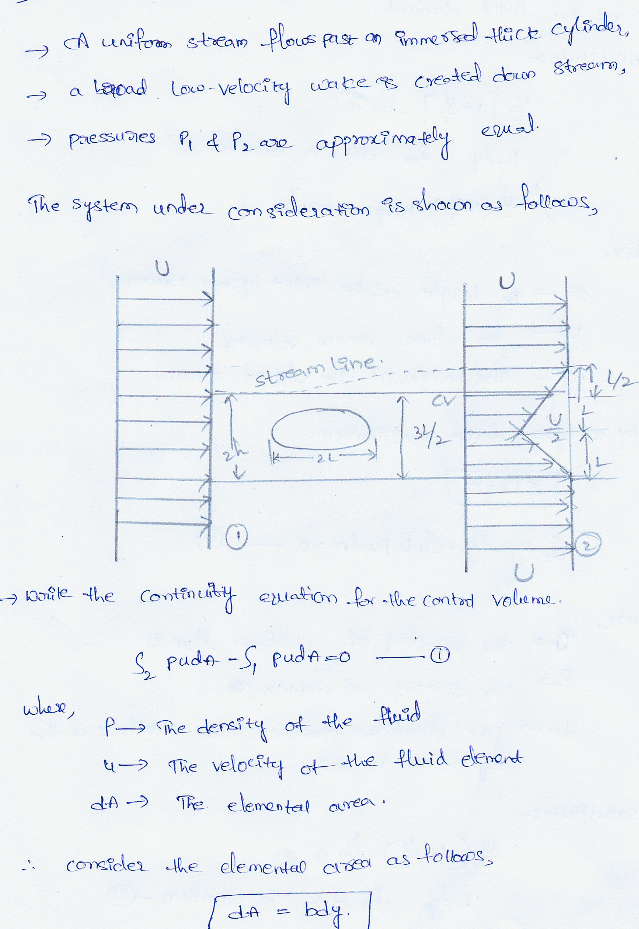 → A uniform stream flows past an immersed thick cylinder,
→ a broad low-velocity wake is created down stream,
→ pressures P₁ & P₂ are approximately equal.
The system under consideration is shown as follows,
U
U
stream line.
CV
L/2
2h
2L
3L/2
U/2
L
L
①
②
U
→ Write the continuity equation for the control volume.
∫₂ ρudA - ∫₁ ρudA = 0 —— ①
where,
ρ → The density of the fluid
u → The velocity of the fluid element
dA → The elemental area.
∴ consider the elemental area as follows,
dA = bdy.